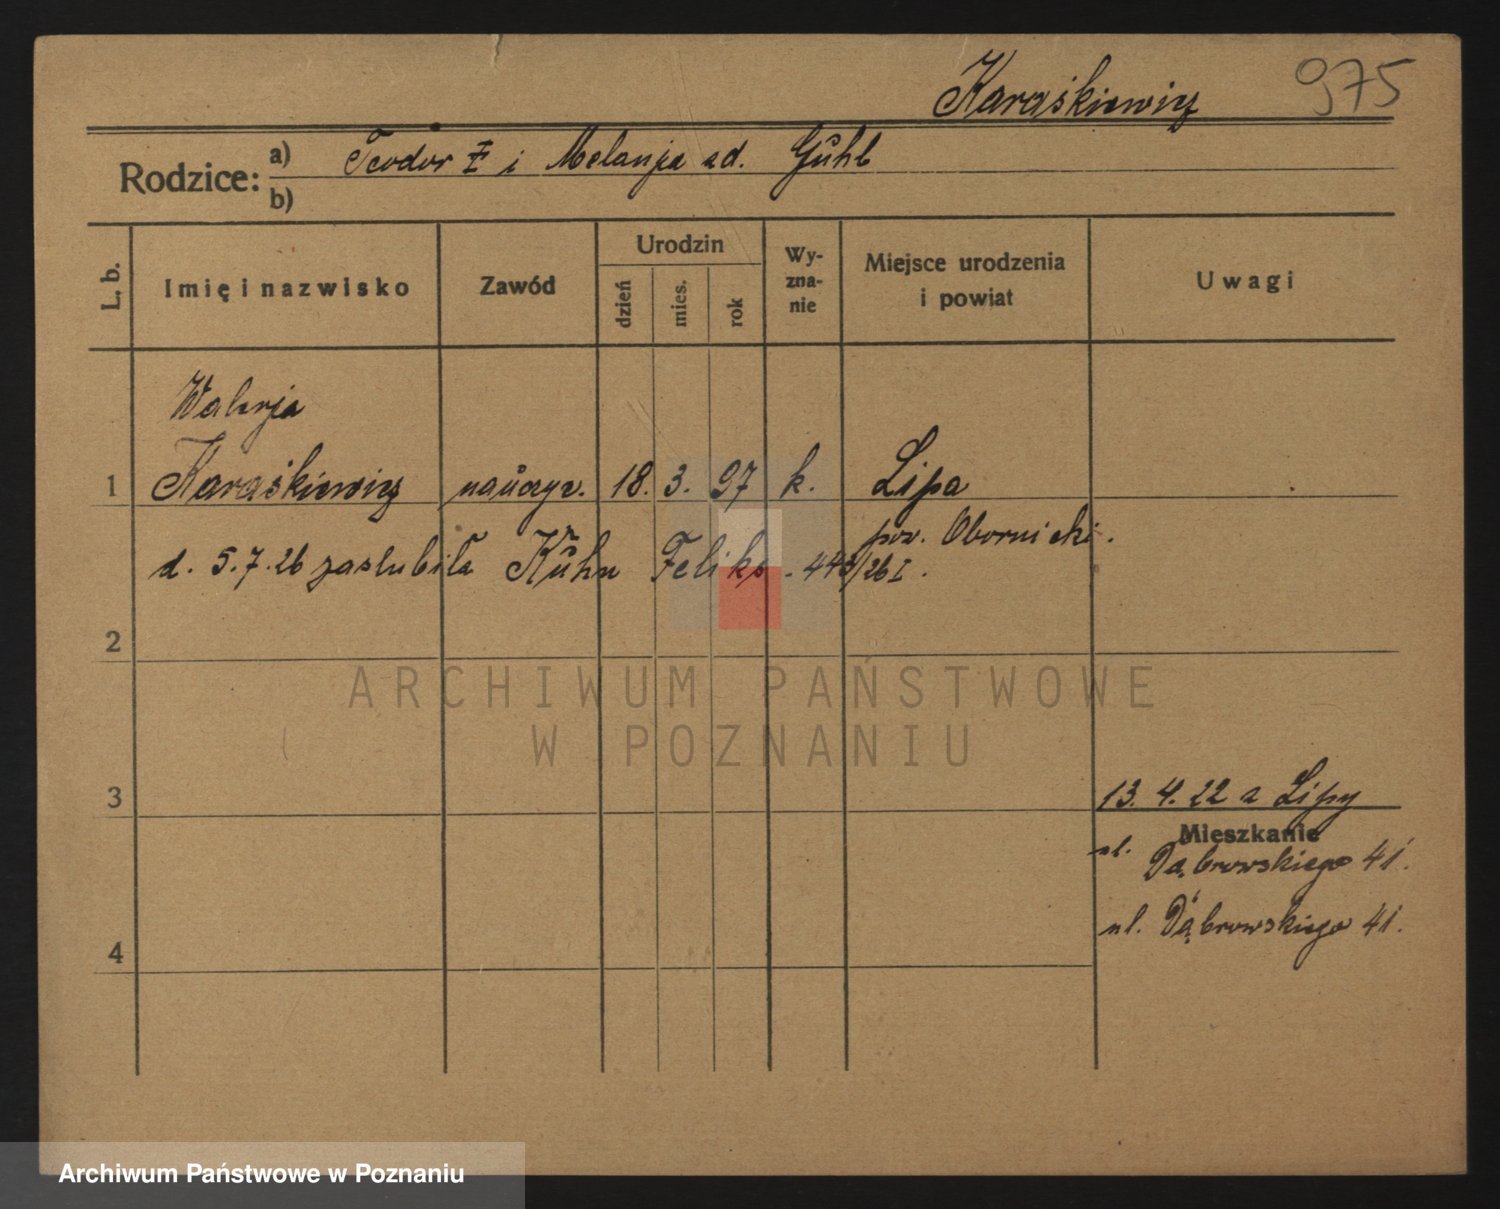 Karaśkiewicz 975
Rodzice: a) Teodor i Melanja zd. Gühl
b)
L. b. Imię i nazwisko Zawód Urodzin dzień mies. rok Wyznanie Miejsce urodzenia i powiat Uwagi
Walerja
1 Karaśkiewicz nauczyc. 18. 3. 97 k. Lipa
pow. Obornicki.
d. 5.7.26 zaslubiła Kühn Feliks - 443/26 I.
2
ARCHIWUM PAŃSTWOWE
W POZNANIU
3 13. 4. 22 z Lipy
Mieszkanie
ul. Dąbrowskiego 41.
ul. Dąbrowskiego 41.
4
Archiwum Państwowe w Poznaniu